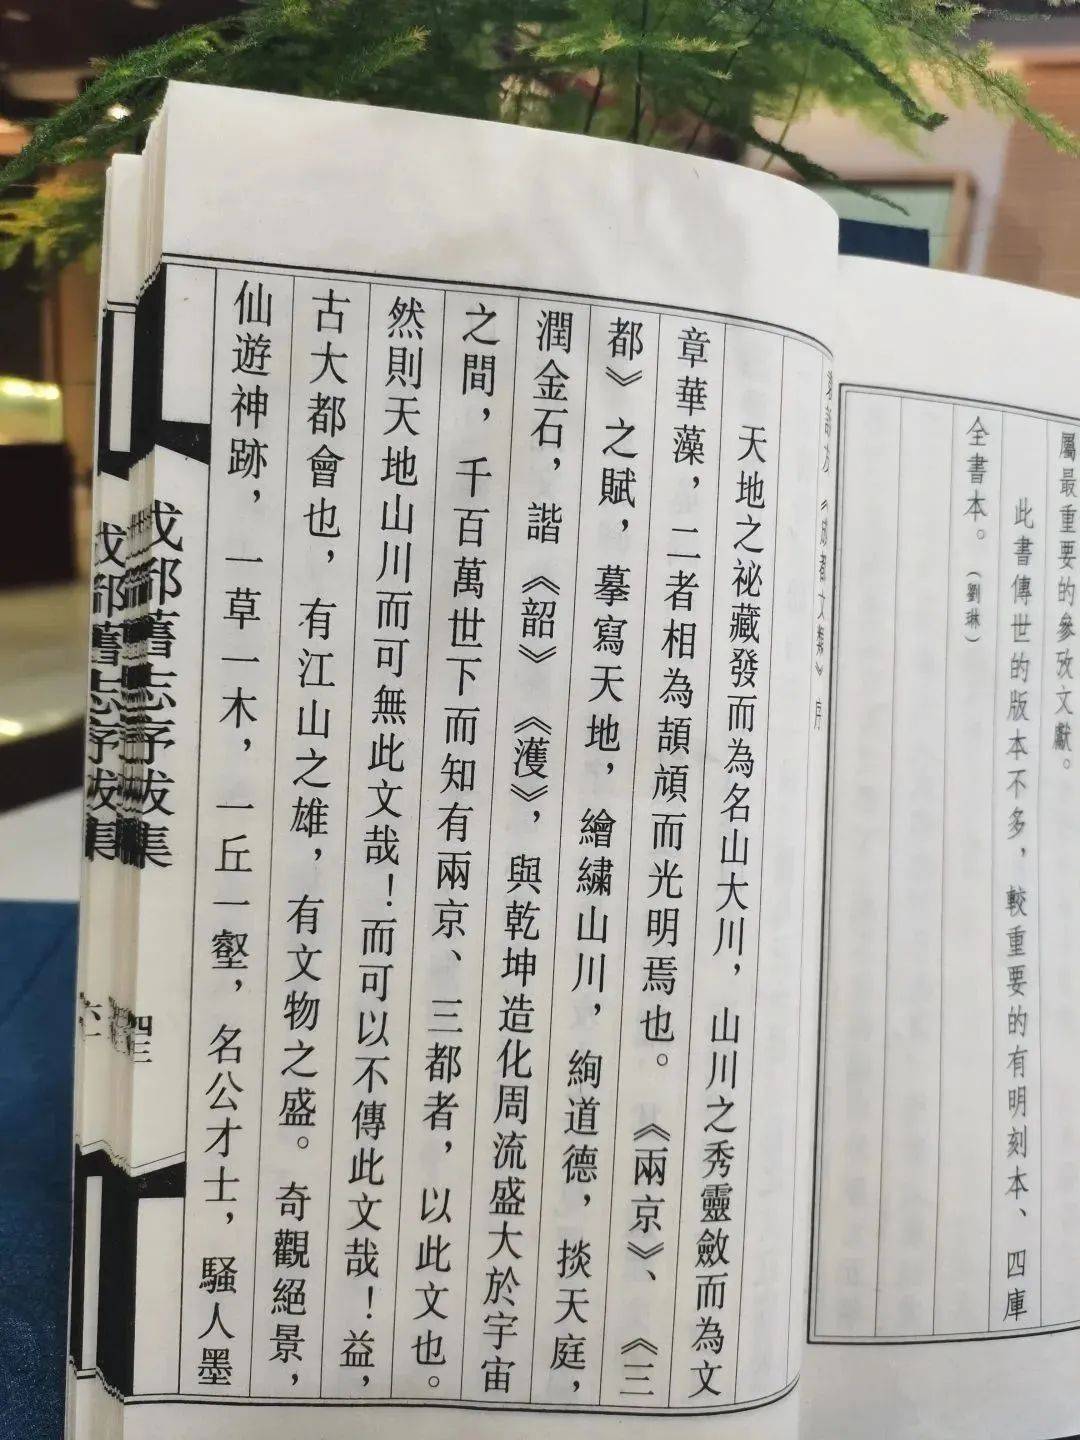 屬最重要的參攷文獻。
此書傳世的版本不多，較重要的有明刻本、四庫
全書本。（劉琳）
《成都文類》序
天地之祕藏發而為名山大川，山川之秀靈斂而為文
章華藻，二者相為頡頏而光明焉也。《兩京》、《三
都》之賦，摹寫天地，繪繡山川，絢道德，掞天庭，
潤金石，諧《韶》《濩》，與乾坤造化周流盛大於宇宙
之間，千百萬世下而知有兩京、三都者，以此文也。
然則天地山川而可無此文哉！而可以不傳此文哉！益，
古大都會也，有江山之雄，有文物之盛。奇觀絕景，
仙遊神跡，一草一木，一丘一壑，名公才士，騷人墨
成都舊志序跋集
四三
成都舊志序跋集
六一